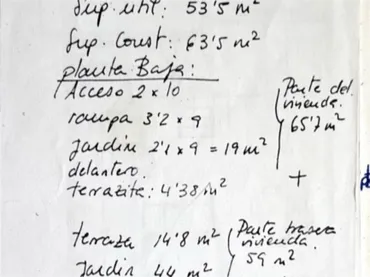 Sup. util: 53'5 m²
Sup. Const: 63'5 m²
planta Baja:
Acceso 2 x 10
rampa 3'2 x 9
Jardin 2'1 x 9 = 19 m²
delantero.
terrazita: 4'38 m²
Parte del.
vivienda.
65'7 m²
+
terraza 14'8 m²
Jardin 44 m²
Parte trasera
vivienda.
59 m²